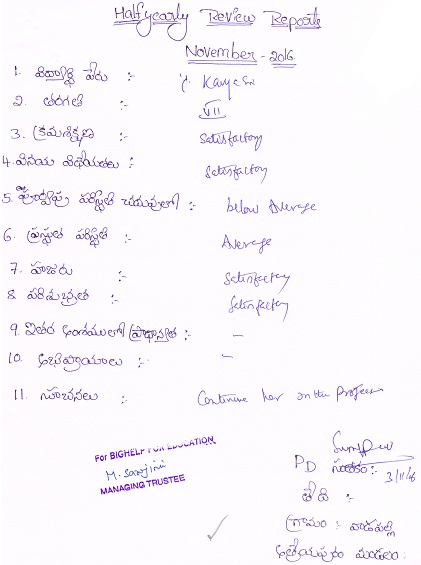 Half yearly Review Reports
November - 2016
1. విద్యార్థి పేరు :- Y. Kavya Sri
2. తరగతి :- VII
3. క్రమశిక్షణ :- Satisfactory
4. వినయ విధేయతలు :- Satisfactory
5. పూర్వపు పరిస్థితి చదువులో :- below Average
6. ప్రస్తుత పరిస్థితి :- Average
7. హాజరు :- Satisfactory
8. పరిశుభ్రత :- Satisfactory
9. ఇతర అంశములలో ప్రాధాన్యత :- -
10. అభిప్రాయాలు :- -
11. సూచనలు :- Continue her on the
For BIGHELP FOR EDUCATION
M. Sarojini
MANAGING TRUSTEE
PD సంతకం :- 3/11/16
తేది :-
గ్రామం : వాడపల్లి
ఆత్రేయపురం మండలం :